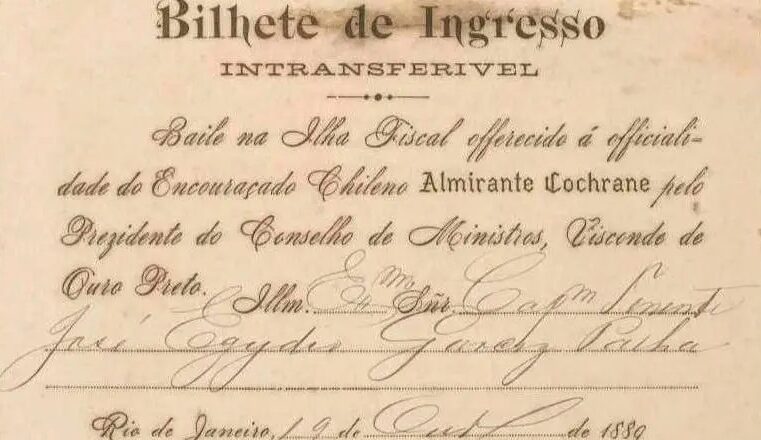 Bilhete de Ingresso
INTRANSFERIVEL
Baile na Ilha Fiscal offerecido á officiali-
dade do Encouraçado Chileno Almirante Cochrane pelo
Prezidente do Conselho de Ministros, Visconde de
Ouro Preto. Illm. Exmo Sñr. Capm Tenente
José Egydio Garcez Palha
Rio de Janeiro, 19 de Outo de 1889